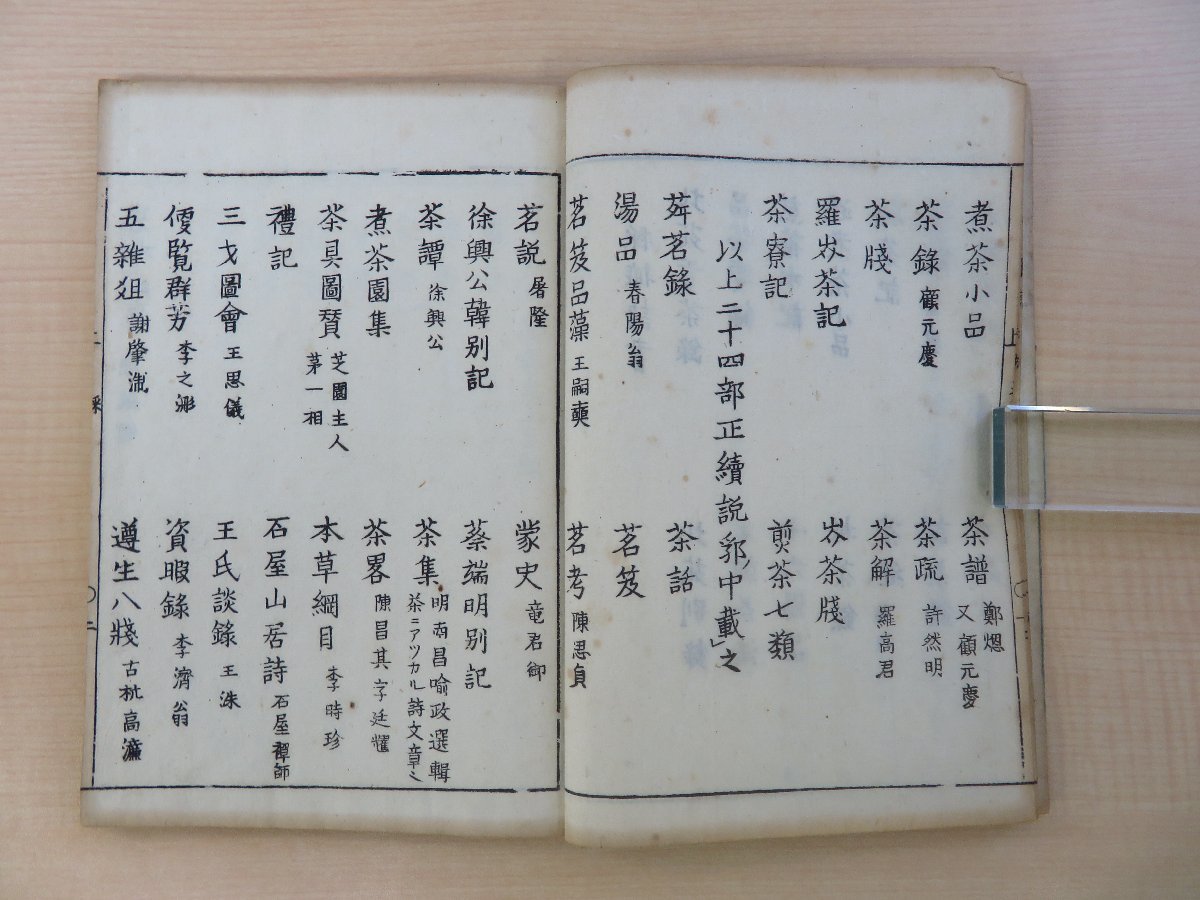 煮茶小品　茶譜 鄭煾 又顧元慶
茶錄 顧元慶　茶疏 許然明
茶牋　茶解 羅高君
羅岕茶記　岕茶牋
茶寮記　煎茶七類
以上二十四部正續説郛中載之
荈茗錄　茶話
湯品 春陽翁　茗笈
茗笈品藻 王嗣奭　茗考 陳思貞
茗説 屠隆　蒙史 竜君御
徐興公韓别記　蔡端明别記
茶譚 徐興公　茶集 明南昌喻政選輯 茶ニアツカル詩文章ヽ
煮茶園集　茶畧 陳昌其字廷耀
茶具圖賛 芝園主人 茅一相　本草綱目 李時珍
禮記　石屋山居詩 石屋禪師
三才圖會 王思儀　王氏談錄 王洙
傻覧群芳 李之澎　資暇錄 李濟翁
五雜爼 謝肇淛　遵生八牋 古杭高濂